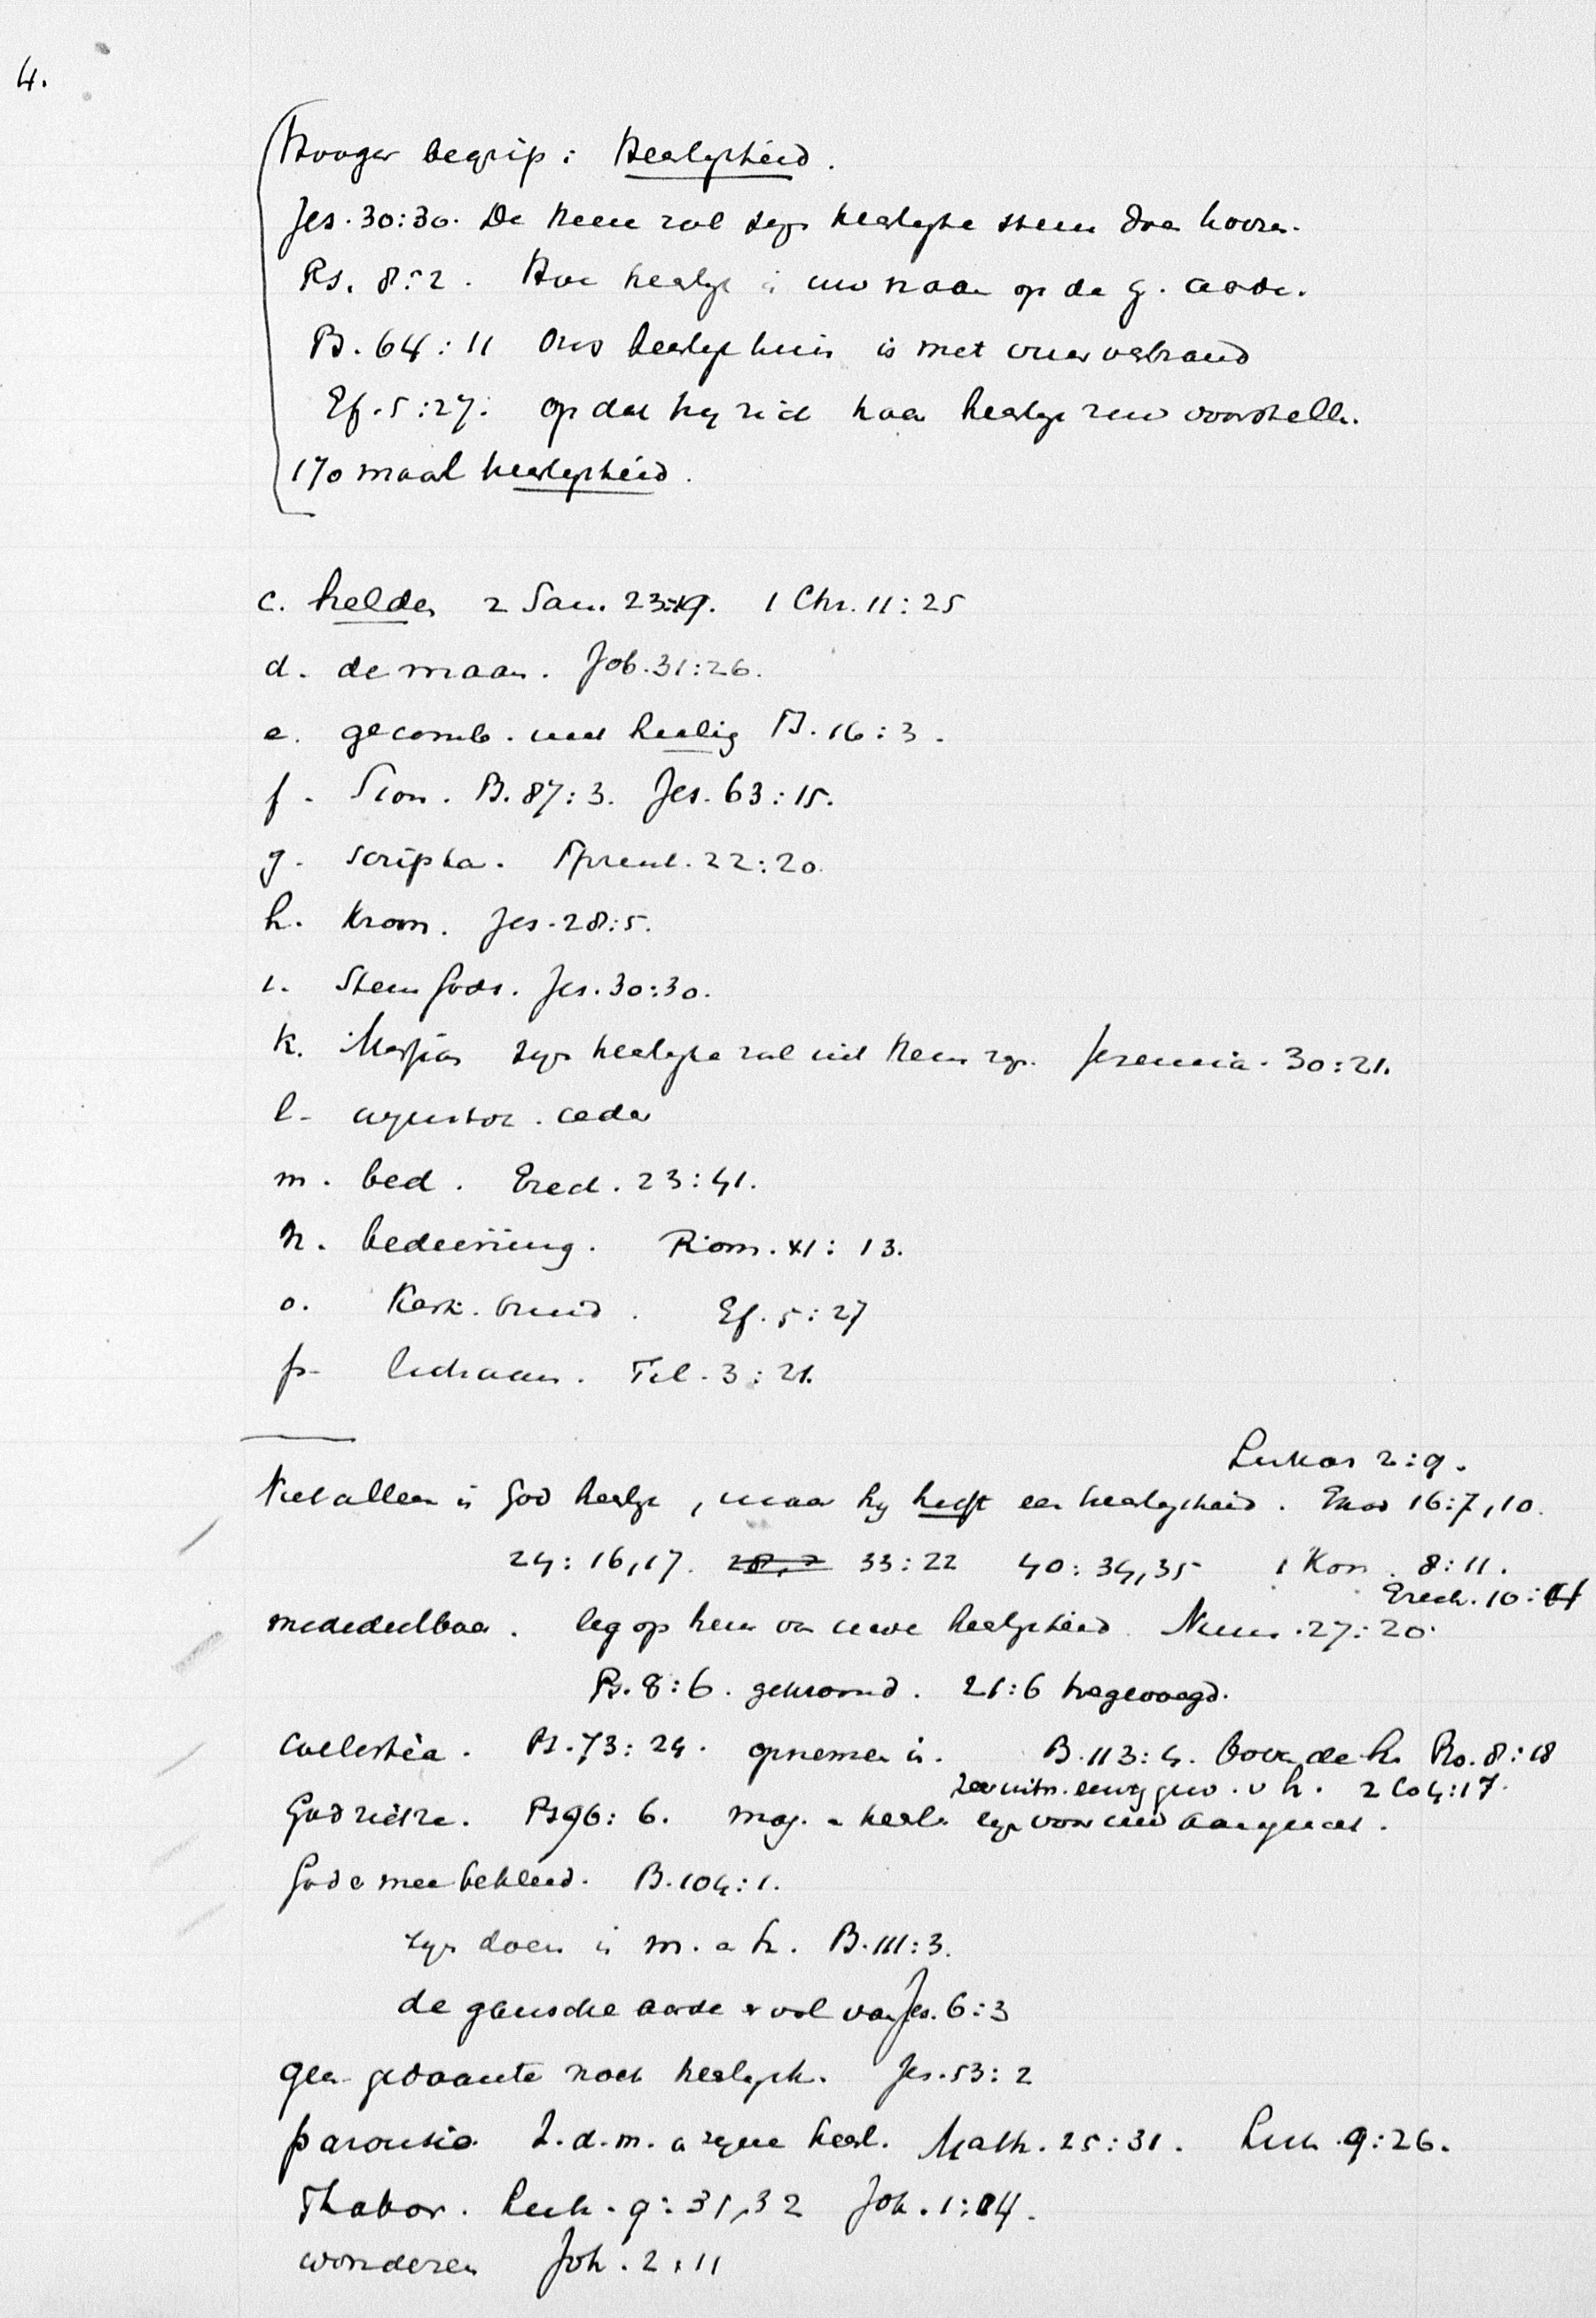 4.
Hooger begrip: Heerlijkheid.
Jes. 30:30. De Heere zal zijn heerlijke stem doen hooren.
Ps. 8:2. Hoe heerlijk is uw naam op de g. aarde.
Ps. 64:11 Ons heerlijk huis is met vuur verbrand
Ef. 5:27. opdat hij zich haar heerlijk zou voorstelle.
170 maal heerlijkheid.
c. helden 2 Sam. 23:19. 1 Chr. 11:25
d. de maan. Job. 31:26.
e. gecomb. met heilig Ps. 16:3.
f. Sion. Ps. 87:3. Jes. 63:15.
g. scripta. Spreuk. 22:20.
h. Kroon. Jes. 28:5.
i. Stem Gods. Jes. 30:30.
k. Messias zijn heerlijke zal uit hem zijn. Jeremia. 30:21.
l. ceder
m. bed. Ezech. 23:41.
n. bediening. Rom. XI: 13.
o. Kerk. bruid. Ef. 5:27
p. lichaam. Fil. 3:21.
Lukas 2:9.
Niet alleen is God heerlijk, maar hij heeft een heerlijkheid. Exod 16:7,10.
24:16,17. 33:22 40:34,35 1 Kon. 8:11.
Ezech. 10:4
mededeelbaar. leg op hem van uwe heerlijkheid. Num. 27:20.
Ps. 8:6. gekroond. 21:6 toegevoegd.
Coelestia. Ps. 73:24. opnemen in. Ps. 113:4. boven de h. Ro. 8:18
zeer uitn. eeuwig gew. v h. 2 Co 4:17.
God zich. Ps 96:6. maj. e heerl. zijn voor uw aangezicht.
God er mee bekleed. Ps. 104:1.
zijn doen is m. e h. Ps. 111:3.
de gansche aarde is vol van Jes. 6:3
geen gedaante noch heerlijkh. Jes. 53:2
parousia. Z.d.m. in zijne heerl. Matth. 25:31. Luk. 9:26.
Thabor. Luk. 9:31,32 Joh. 1:14.
wonderen Joh. 2:11